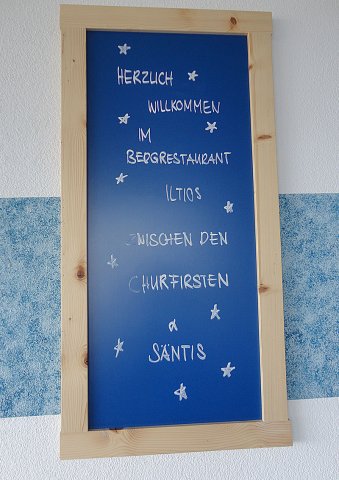 HERZLICH
WILLKOMMEN
IM
BERGRESTAURANT
ILTIOS
ZWISCHEN DEN
CHURFIRSTEN
&
SÄNTIS